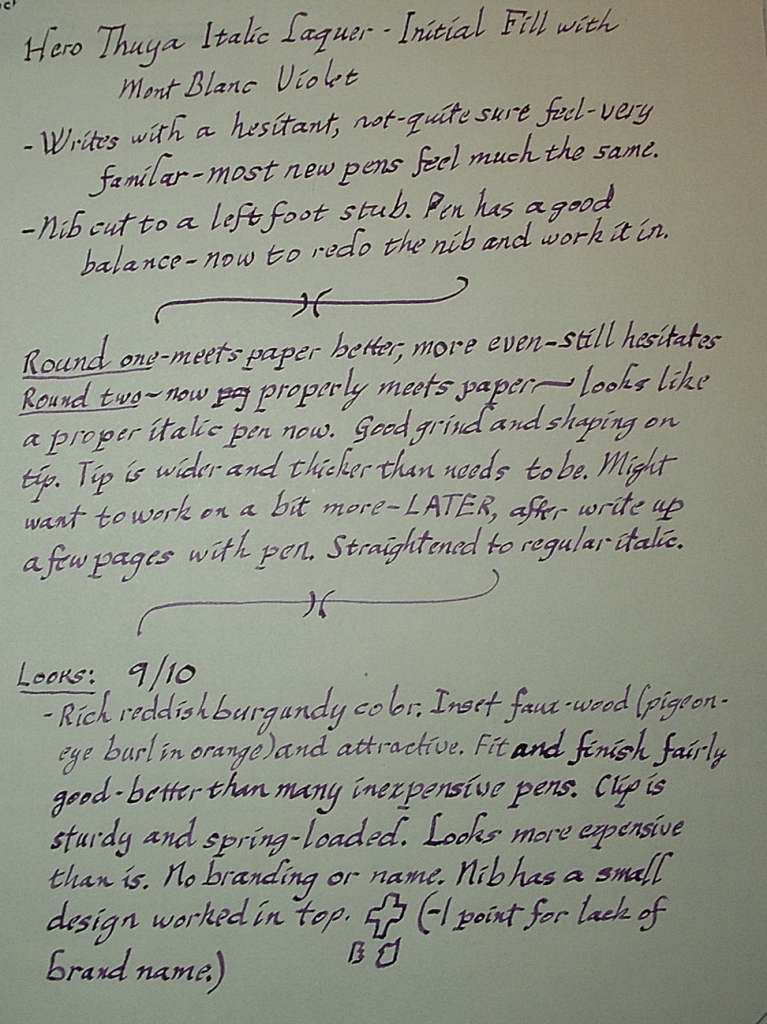 Hero Thuya Italic Laquer - Initial Fill with
Mont Blanc Violet
- Writes with a hesitant, not-quite sure feel-very
familar-most new pens feel much the same.
- Nib cut to a left foot stub. Pen has a good
balance-now to redo the nib and work it in.
Round one-meets paper better, more even-still hesitates
Round two-now properly meets paper- looks like
a proper italic pen now. Good grind and shaping on
tip. Tip is wider and thicker than needs to be. Might
want to work on a bit more-LATER, after write up
a few pages with pen. Straightened to regular italic.
Looks: 9/10
- Rich reddish burgundy color. Inset faux-wood (pigeon-
eye burl in orange) and attractive. Fit and finish fairly
good-better than many inexpensive pens. Clip is
sturdy and spring-loaded. Looks more expensive
than is. No branding or name. Nib has a small
design worked in top. (-1 point for lack of
brand name.)